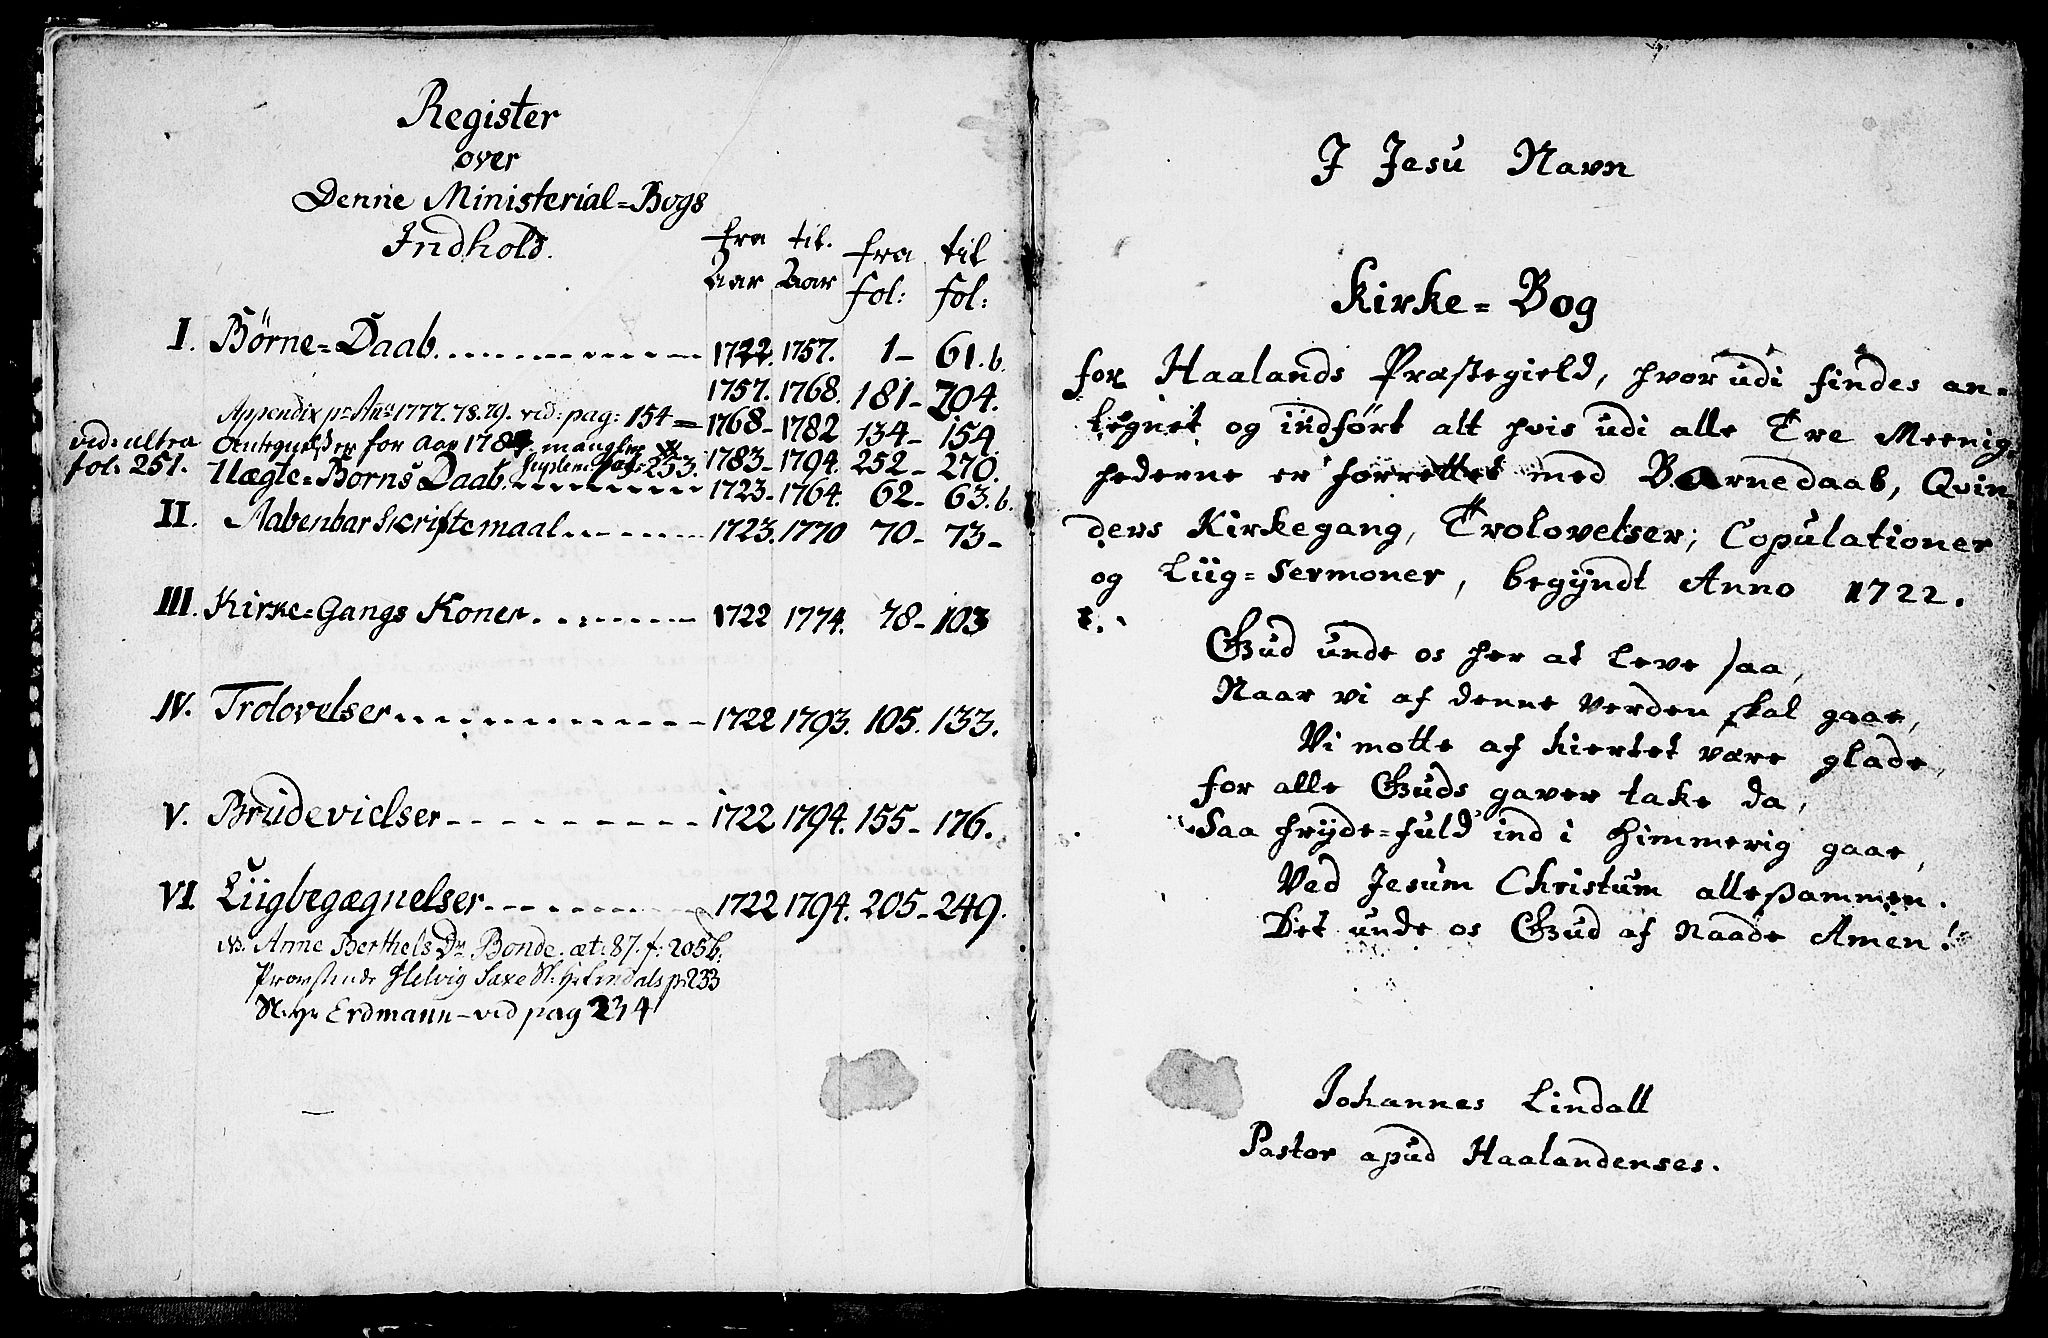 Register
over
Denne Ministerial=Bogs
Indhold.
fra til. fra til
Aar Aar fol: fol:
I. Børne=Daab. 1722. 1757. 1- 61.b.
1757. 1768. 181- 204.
Appendix pr Ano 1777. 78. 79. vid: pag: 154 = 1768- 1782 134- 154.
vid: ultra for Aar mangler
fol: 251. 253. 1783- 1794. 252- 270.
Uægte=Børns Daab. 1723- 1764. 62- 63.b.
II. Aabenbar Skriftemaal. 1723. 1770 70- 73-
III. Kirke=Gangs Koner. 1722 1774. 78- 103
IV. Trolovelser 1722 1793. 105. 133.
V. Brudevielser 1722 1794. 155- 176.
VI. Liigbegægnelser. 1722 1794. 205- 249.
NB. Anne Berthels Dr Bonde. æt: 87. f: 205b.
Provstinde Helvig Saxe Sl: Hr Lindals p: 233
Sl. Hr Erdmann - vid pag 234
J Jesu Navn
Kirke= Bog
for Haalands Præstegield, hvor udi findes an=
tegnet og indført alt hvis udi alle Tre Meenig=
hederne er forrettet med Barnedaab, Qvin
ders Kirkegang, Trolovelser, Copulationer
og Liig= Sermoner, begyndt Anno 1722.
Gud unde os her at leve saa,
Naar vi af denne Verden skal gaae,
Vi motte af hiertet være glade,
for alle Guds gaver take da,
Saa fryde=fuld ind i Himmerig gaae,
Ved Jesum Christum allesammen.
Det unde os Gud af Naade Amen!
Johannes Lindall
Pastor apud Haalandenses.